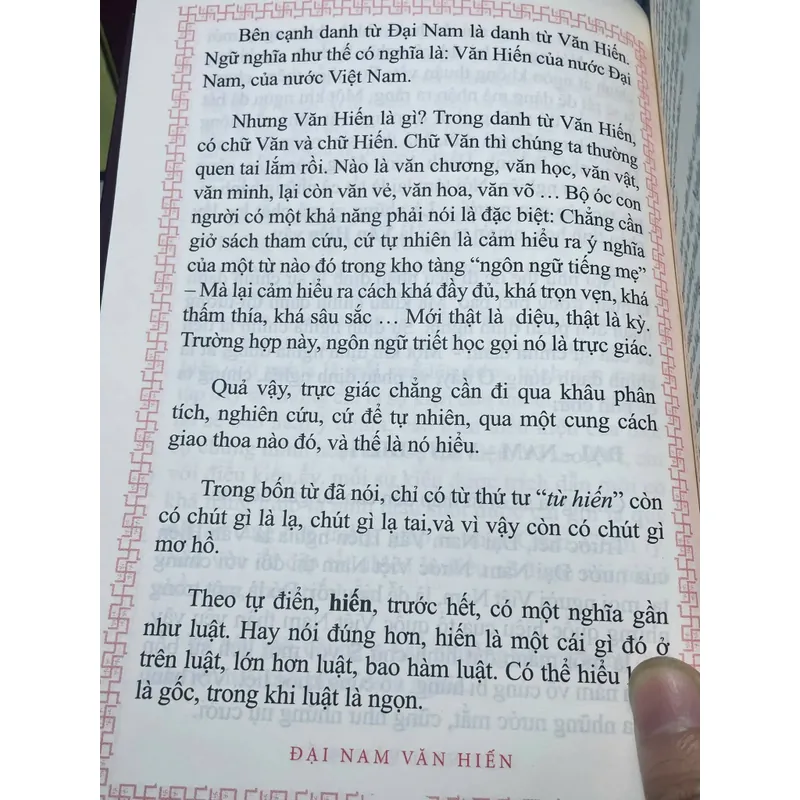 Bên cạnh danh từ Đại Nam là danh từ Văn Hiến.
Ngữ nghĩa như thế có nghĩa là: Văn Hiến của nước Đại
Nam, của nước Việt Nam.
Nhưng Văn Hiến là gì? Trong danh từ Văn Hiến,
có chữ Văn và chữ Hiến. Chữ Văn thì chúng ta thường
quen tai lắm rồi. Nào là văn chương, văn học, văn vật,
văn minh, lại còn văn vẻ, văn hoa, văn võ … Bộ óc con
người có một khả năng phải nói là đặc biệt: Chẳng cần
giở sách tham cứu, cứ tự nhiên là cảm hiểu ra ý nghĩa
của một từ nào đó trong kho tàng “ngôn ngữ tiếng mẹ”
– Mà lại cảm hiểu ra cách khá đầy đủ, khá trọn vẹn, khá
thấm thía, khá sâu sắc … Mới thật là diệu, thật là kỳ.
Trường hợp này, ngôn ngữ triết học gọi nó là trực giác.
Quả vậy, trực giác chẳng cần đi qua khâu phân
tích, nghiên cứu, cứ để tự nhiên, qua một cung cách
giao thoa nào đó, và thế là nó hiểu.
Trong bốn từ đã nói, chỉ có từ thứ tư “từ hiến” còn
có chút gì là lạ, chút gì lạ tai,và vì vậy còn có chút gì
mơ hồ.
Theo tự điển, hiến, trước hết, có một nghĩa gần
như luật. Hay nói đúng hơn, hiến là một cái gì đó ở
trên luật, lớn hơn luật, bao hàm luật. Có thể hiểu
là gốc, trong khi luật là ngọn.
ĐẠI NAM VĂN HIẾN